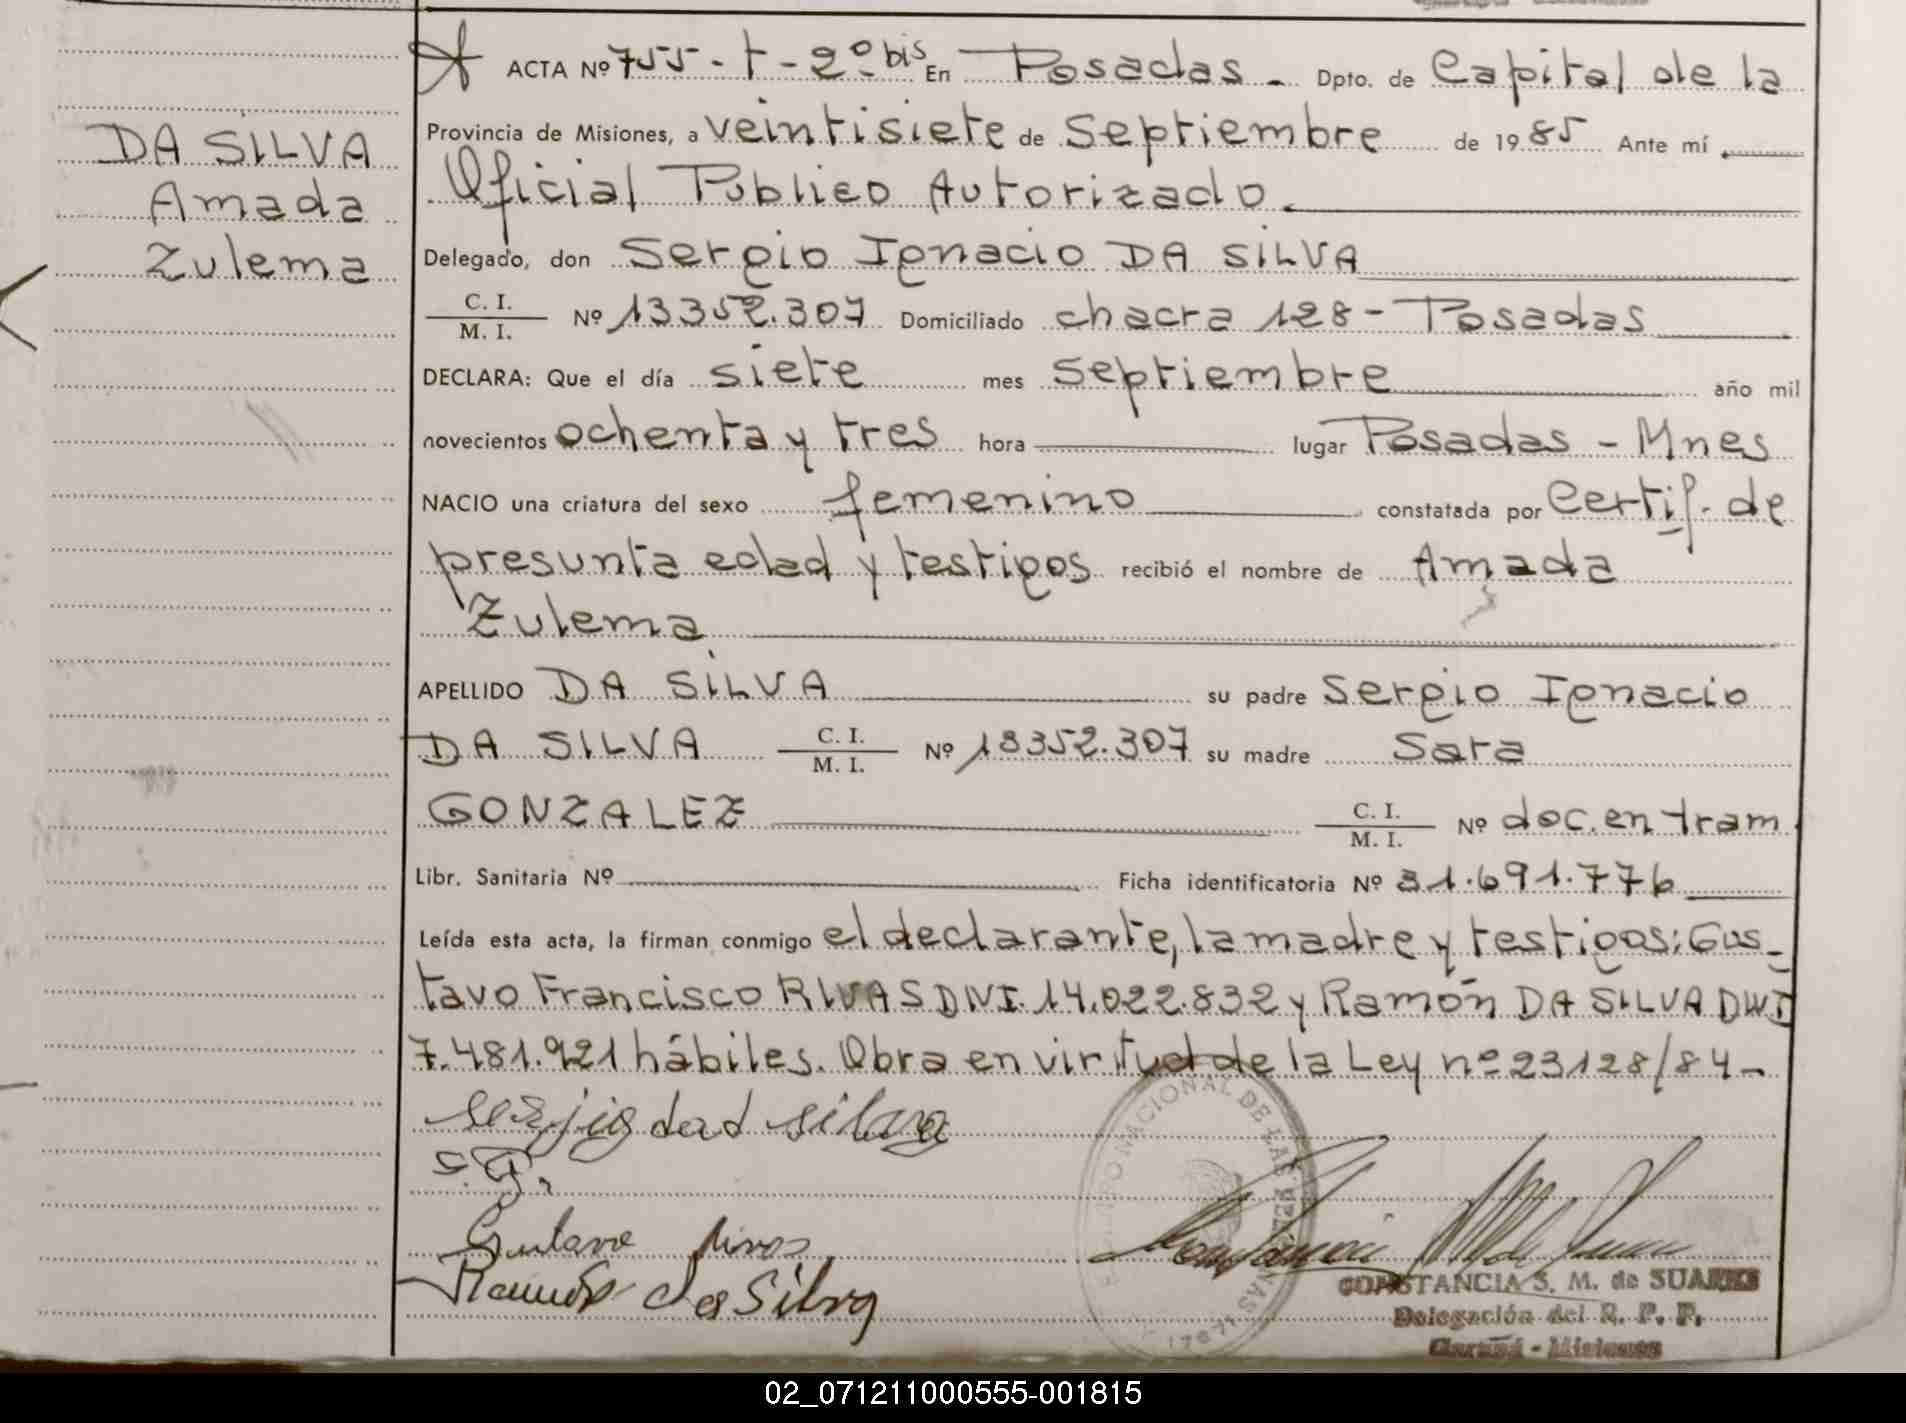 DA SILVA
Amada
Zulema
ACTA Nº 755-t-2º bis En Posadas - Dpto. de Capital de la
Provincia de Misiones, a veintisiete de Septiembre de 1985 Ante mí
Oficial Público Autorizado.
Delegado, don Sergio Ignacio DA SILVA
C. I.
M. I. Nº 13352.307 Domiciliado chacra 128 - Posadas
DECLARA: Que el día siete mes septiembre año mil
novecientos ochenta y tres hora lugar Posadas - Mnes
NACIO una criatura del sexo femenino constatada por Certif. de
presunta edad y testigos recibió el nombre de Amada
Zulema
APELLIDO DA SILVA su padre Sergio Ignacio
DA SILVA C. I. M. I. Nº 13352.307 su madre Sara
GONZALEZ C. I. M. I. Nº doc. en tram
Libr. Sanitaria Nº Ficha identificatoria Nº 31.691.776
Leída esta acta, la firman conmigo el declarante, la madre y testigos: Gus-
tavo Francisco RIVAS DNI. 14.022.832 y Ramón DA SILVA DNI
7.481.921 hábiles. Obra en virtud de la Ley nº 23128/84-
Gustavo Rivas
Ramón da Silva
NACIONAL DE LAS PERSONAS
CONSTANCIA S. M. de SUAREZ
Delegación del R. P. P.
Garupá - Misiones
02_071211000555-001815